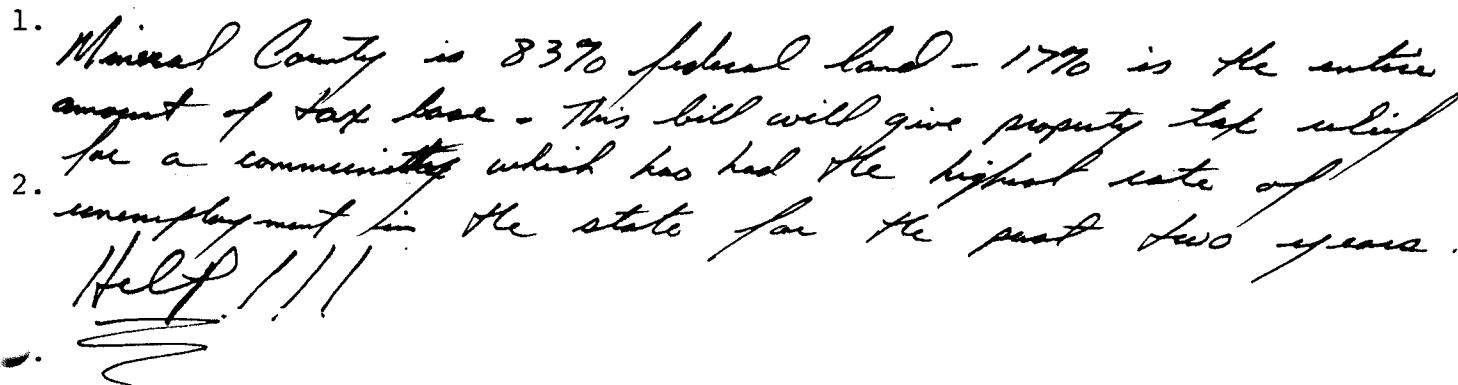 1.
Mineral County is 83% federal land - 17% is the entire
amount of tax base - This bill will give property tax relief
for a community which has had the highest rate of
2.
unemployment in the state for the past two years.
Help!!!